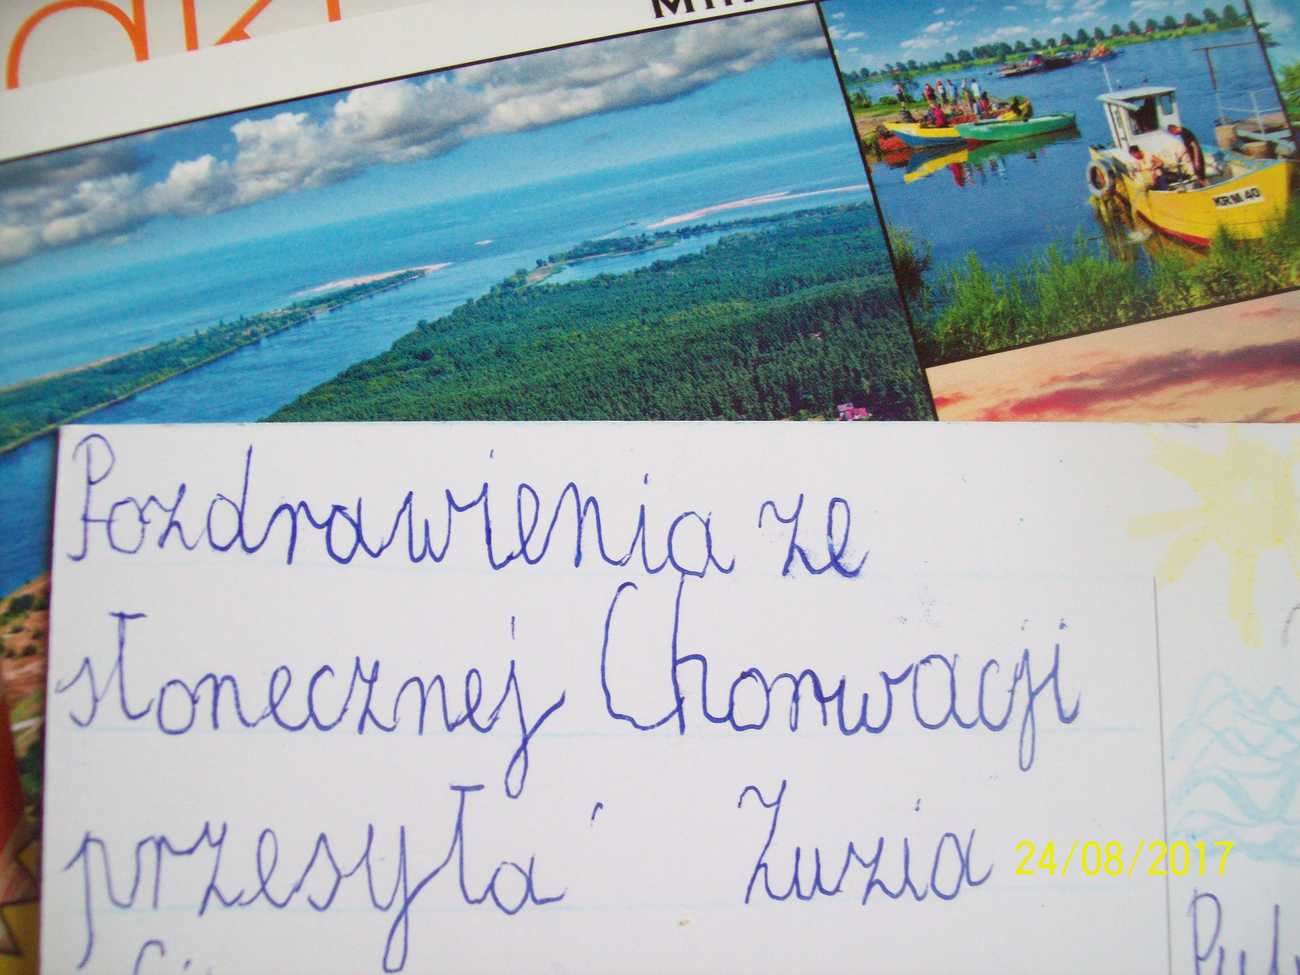 KRM 40
Pozdrawienia ze
słonecznej Chorwacji
przesyła Zuzia
24/08/2017